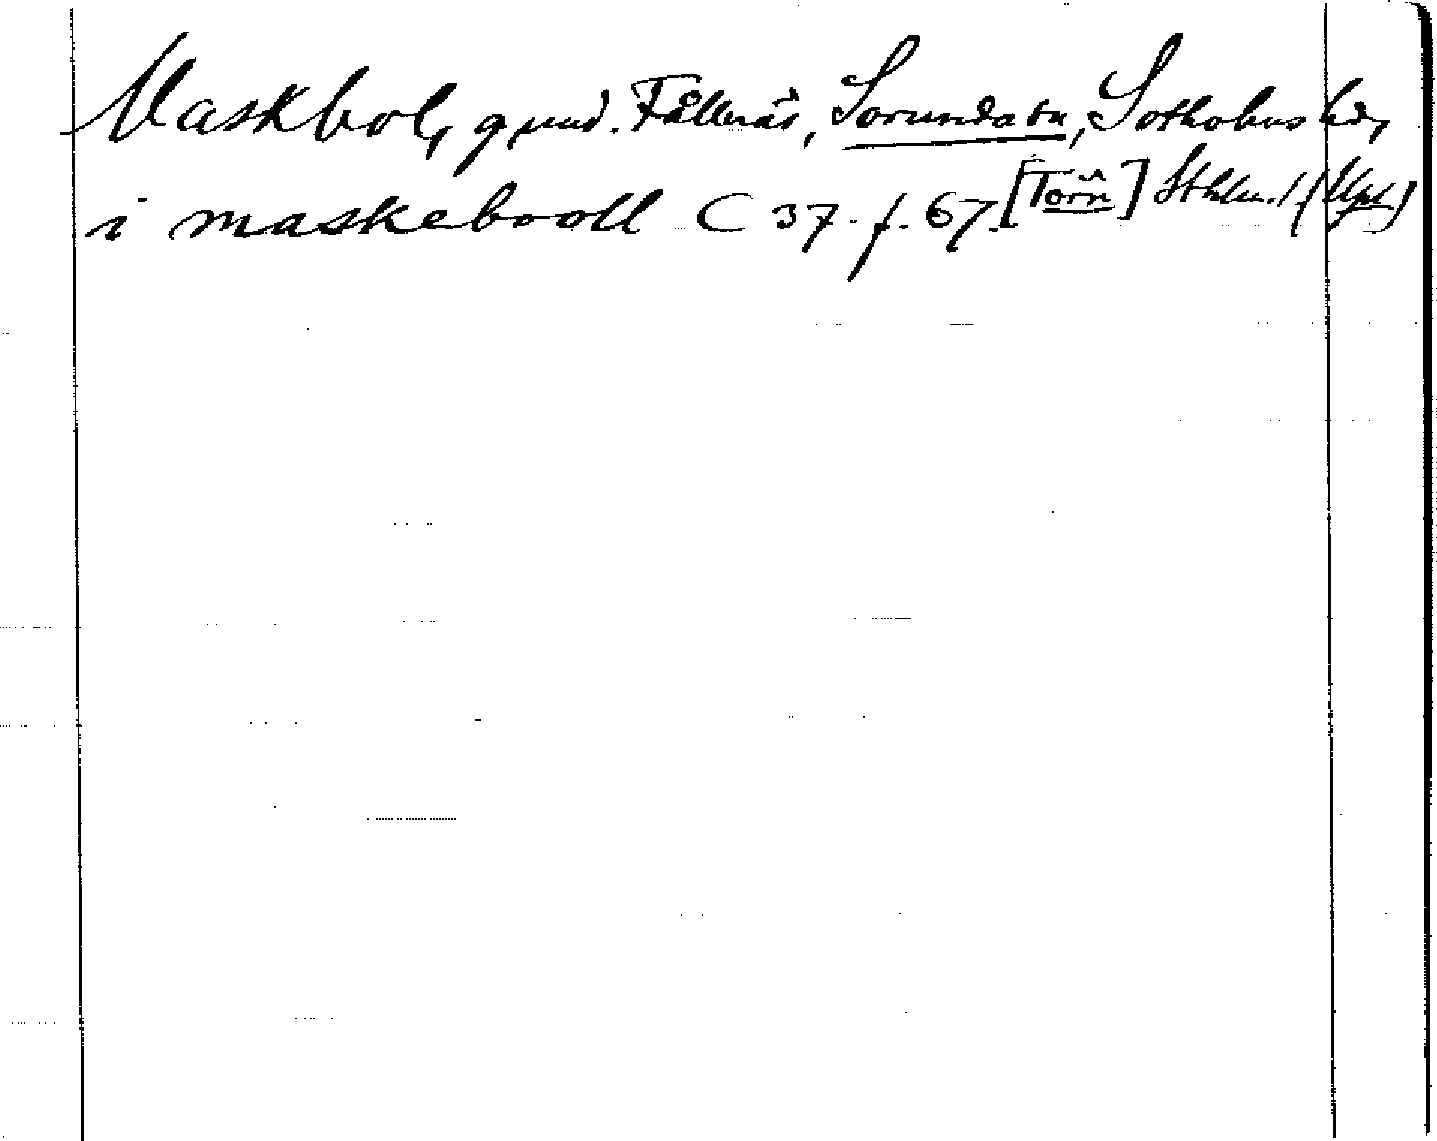 Maskbol, g und. Fållnäs, Sorunda sn, Sotholms hd,
i maskebooll C 37. f. 67. [Törn] Sthlm. l. (Upl.)